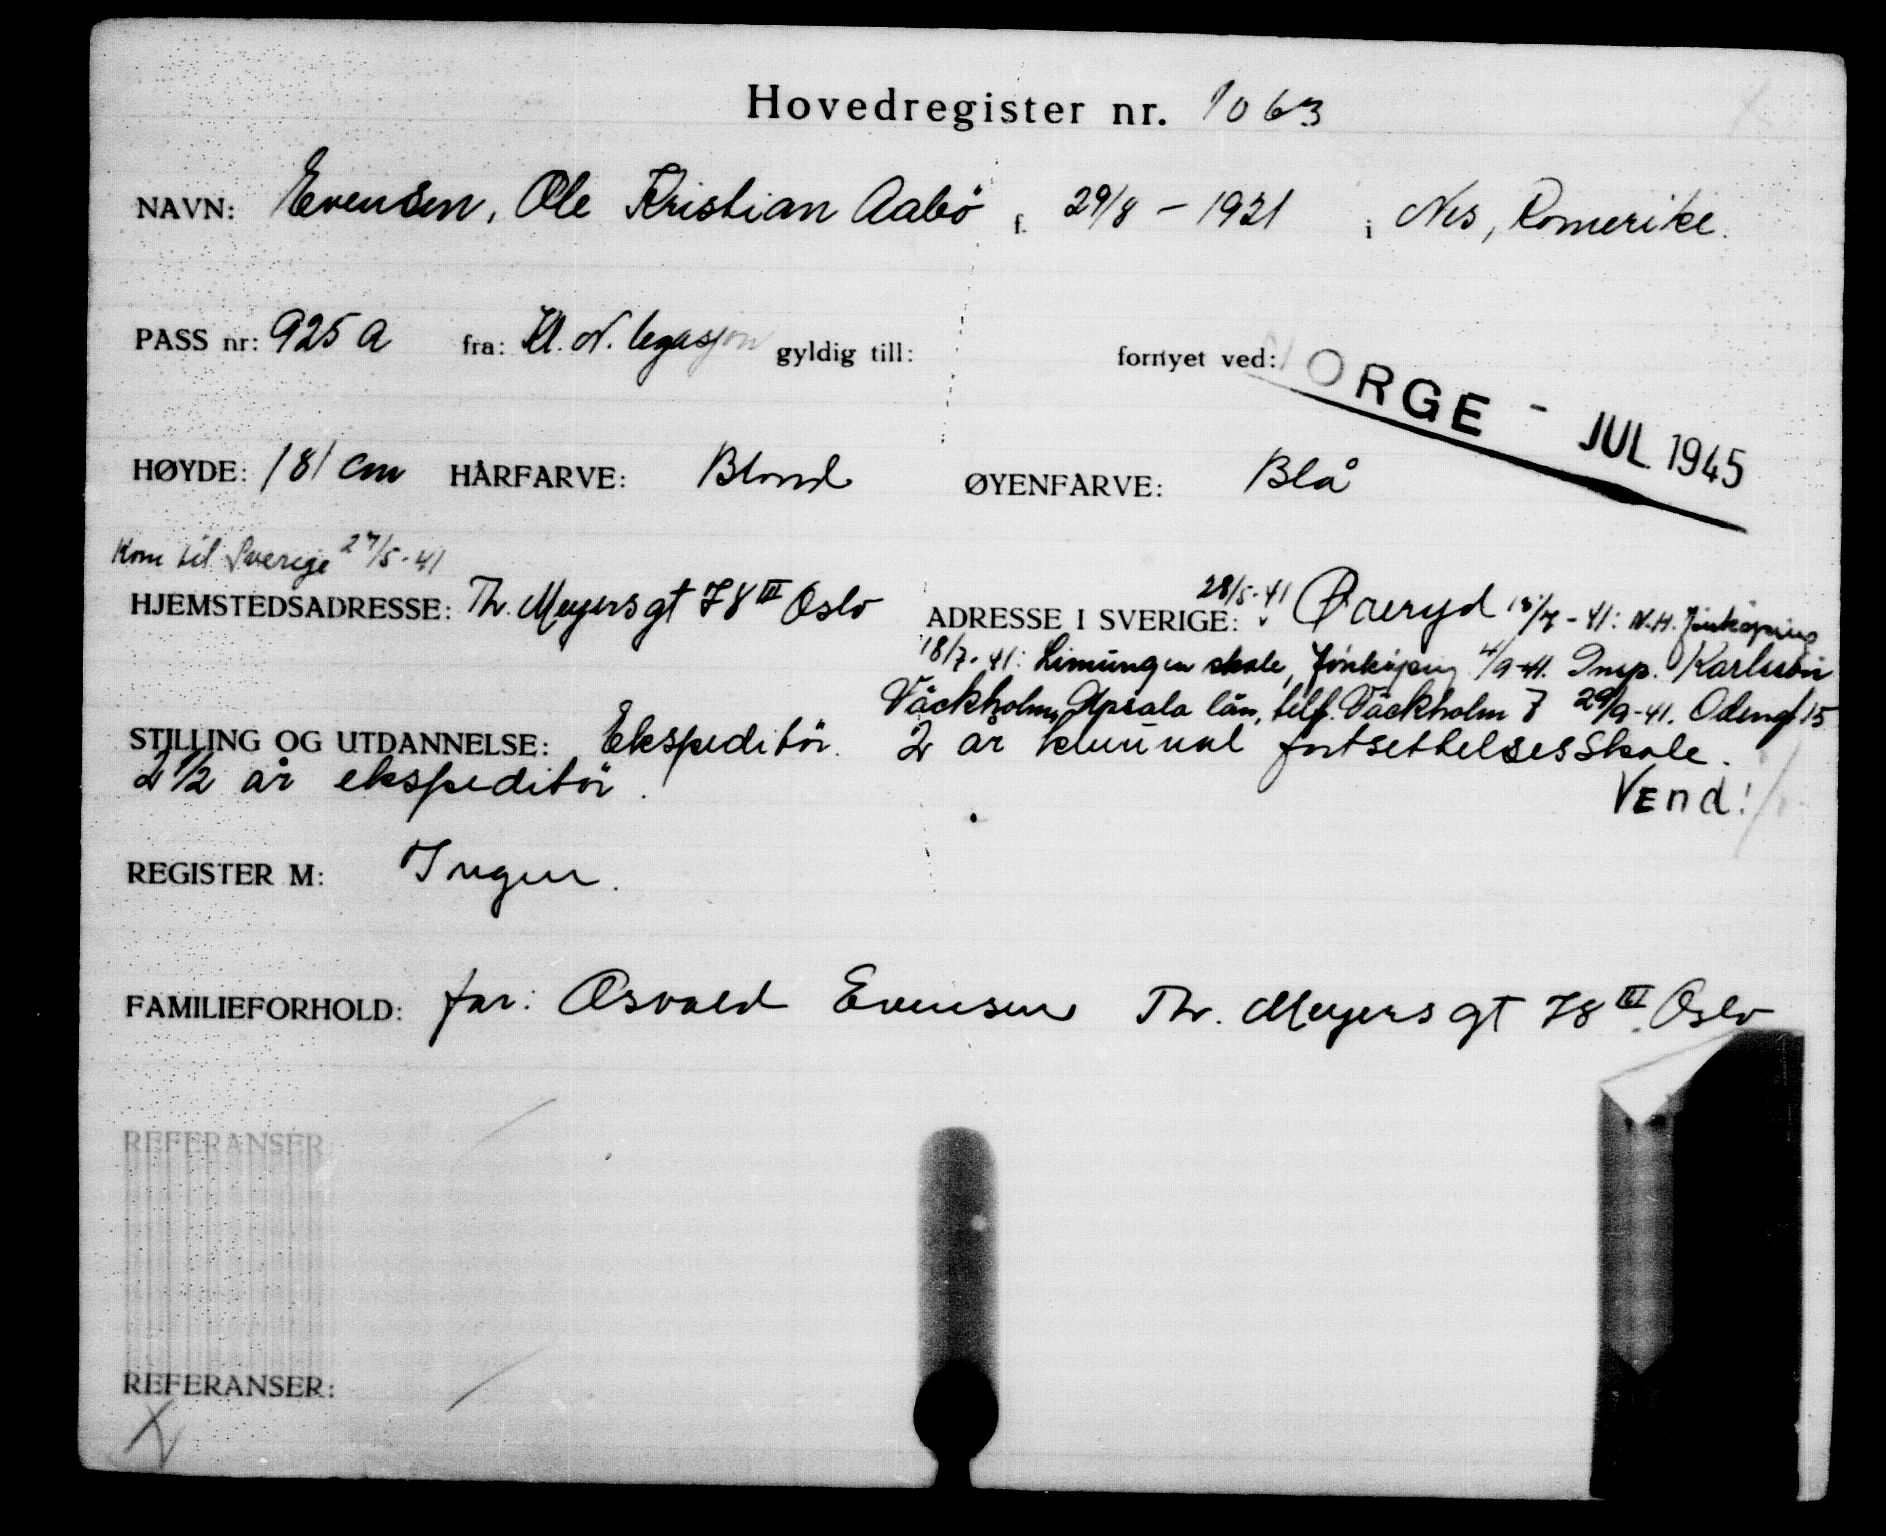 Hovedregister nr. 1063
NAVN: Evensen, Ole Kristian Aabö f. 29/8 - 1921 i Nes, Romerike.
PASS nr: 925 A fra: Kl. N. legasjon gyldig till: fornyet ved:
NORGE - JUL 1945
HØYDE: 181 cm HÅRFARVE: Blond ØYENFARVE: Blå
Kom til Sverige 27/5-41
HJEMSTEDSADRESSE: Th. Meyers gt 78 III Oslo ADRESSE I SVERIGE: 28/5-41 Öreryd 15/7-41: N.H. Jönköping
18/7-41: Limungen skole, Jönköping 4/9-41. Insp. Karlsson
Väckholm, Upsala län, telf. Väckholm 7 29/9-41. Odengt 15
STILLING OG UTDANNELSE: Ekspeditör. 2 år fortsettelsesskole.
2 1/2 år ekspeditör.
Vend!
REGISTER M: Ingen.
FAMILIEFORHOLD: far: Osvald Evensen Th. Meyers gt 78 III Oslo
REFERANSER
REFERANSER: